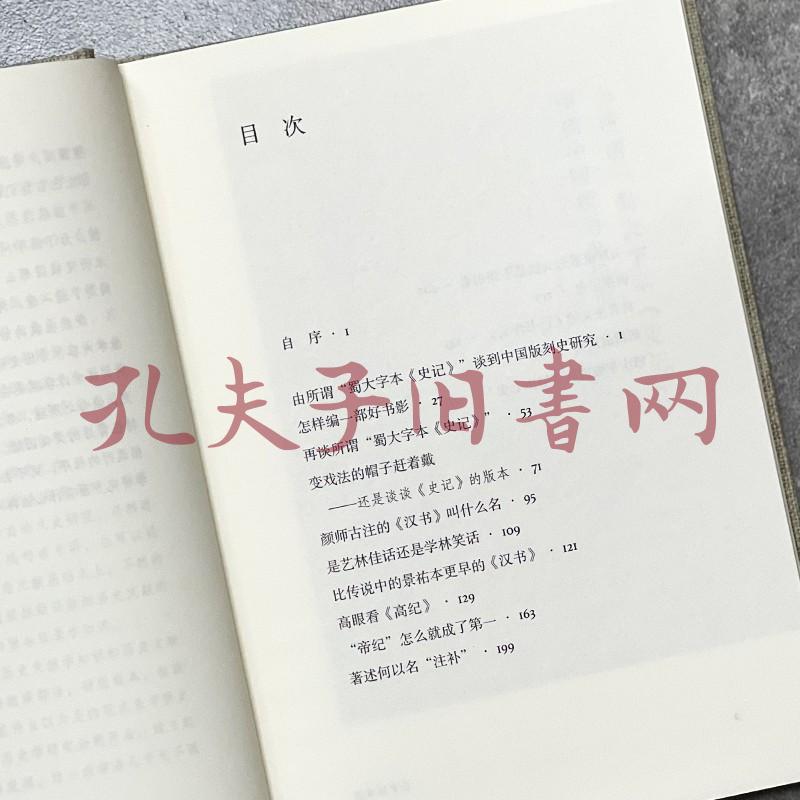 目 次
自 序 · 1
由所谓“蜀大字本《史记》”谈到中国版刻史研究 · 1
怎样编一部好书影 · 27
再谈所谓“蜀大字本《史记》” · 53
变戏法的帽子赶着戴
——还是谈谈《史记》的版本 · 71
颜师古注的《汉书》叫什么名 · 95
是艺林佳话还是学林笑话 · 109
比传说中的景祐本更早的《汉书》 · 121
高眼看《高纪》 · 129
“帝纪”怎么就成了第一 · 163
著述何以名“注补” · 199
孔夫子旧書网